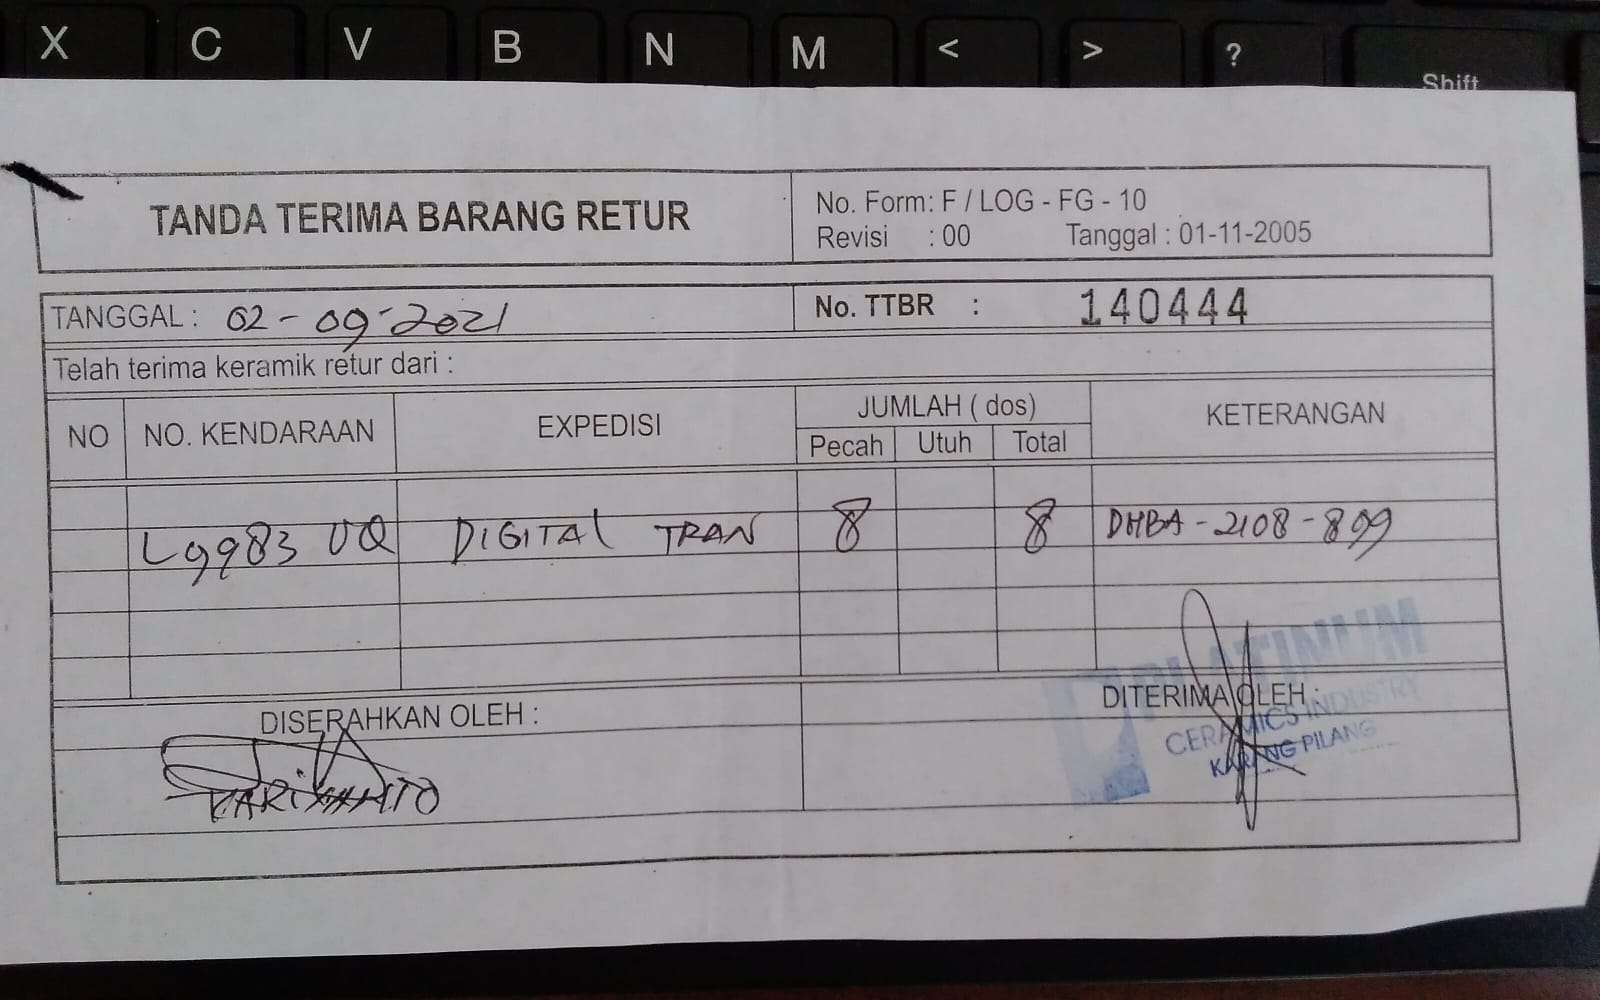 X C V B N M < > ?
Shift
TANDA TERIMA BARANG RETUR
No. Form: F / LOG - FG - 10
Revisi : 00 Tanggal : 01-11-2005
TANGGAL : 02-09-2021
No. TTBR : 140444
Telah terima keramik retur dari :
NO NO. KENDARAAN EXPEDISI JUMLAH ( dos) KETERANGAN
Pecah Utuh Total
L9983 UQ DIGITAL TRAN 8 8 DHBA-2108-899
DISERAHKAN OLEH : DITERIMA OLEH :
PLATINUM
CERAMICS INDUSTRY
KARANG PILANG